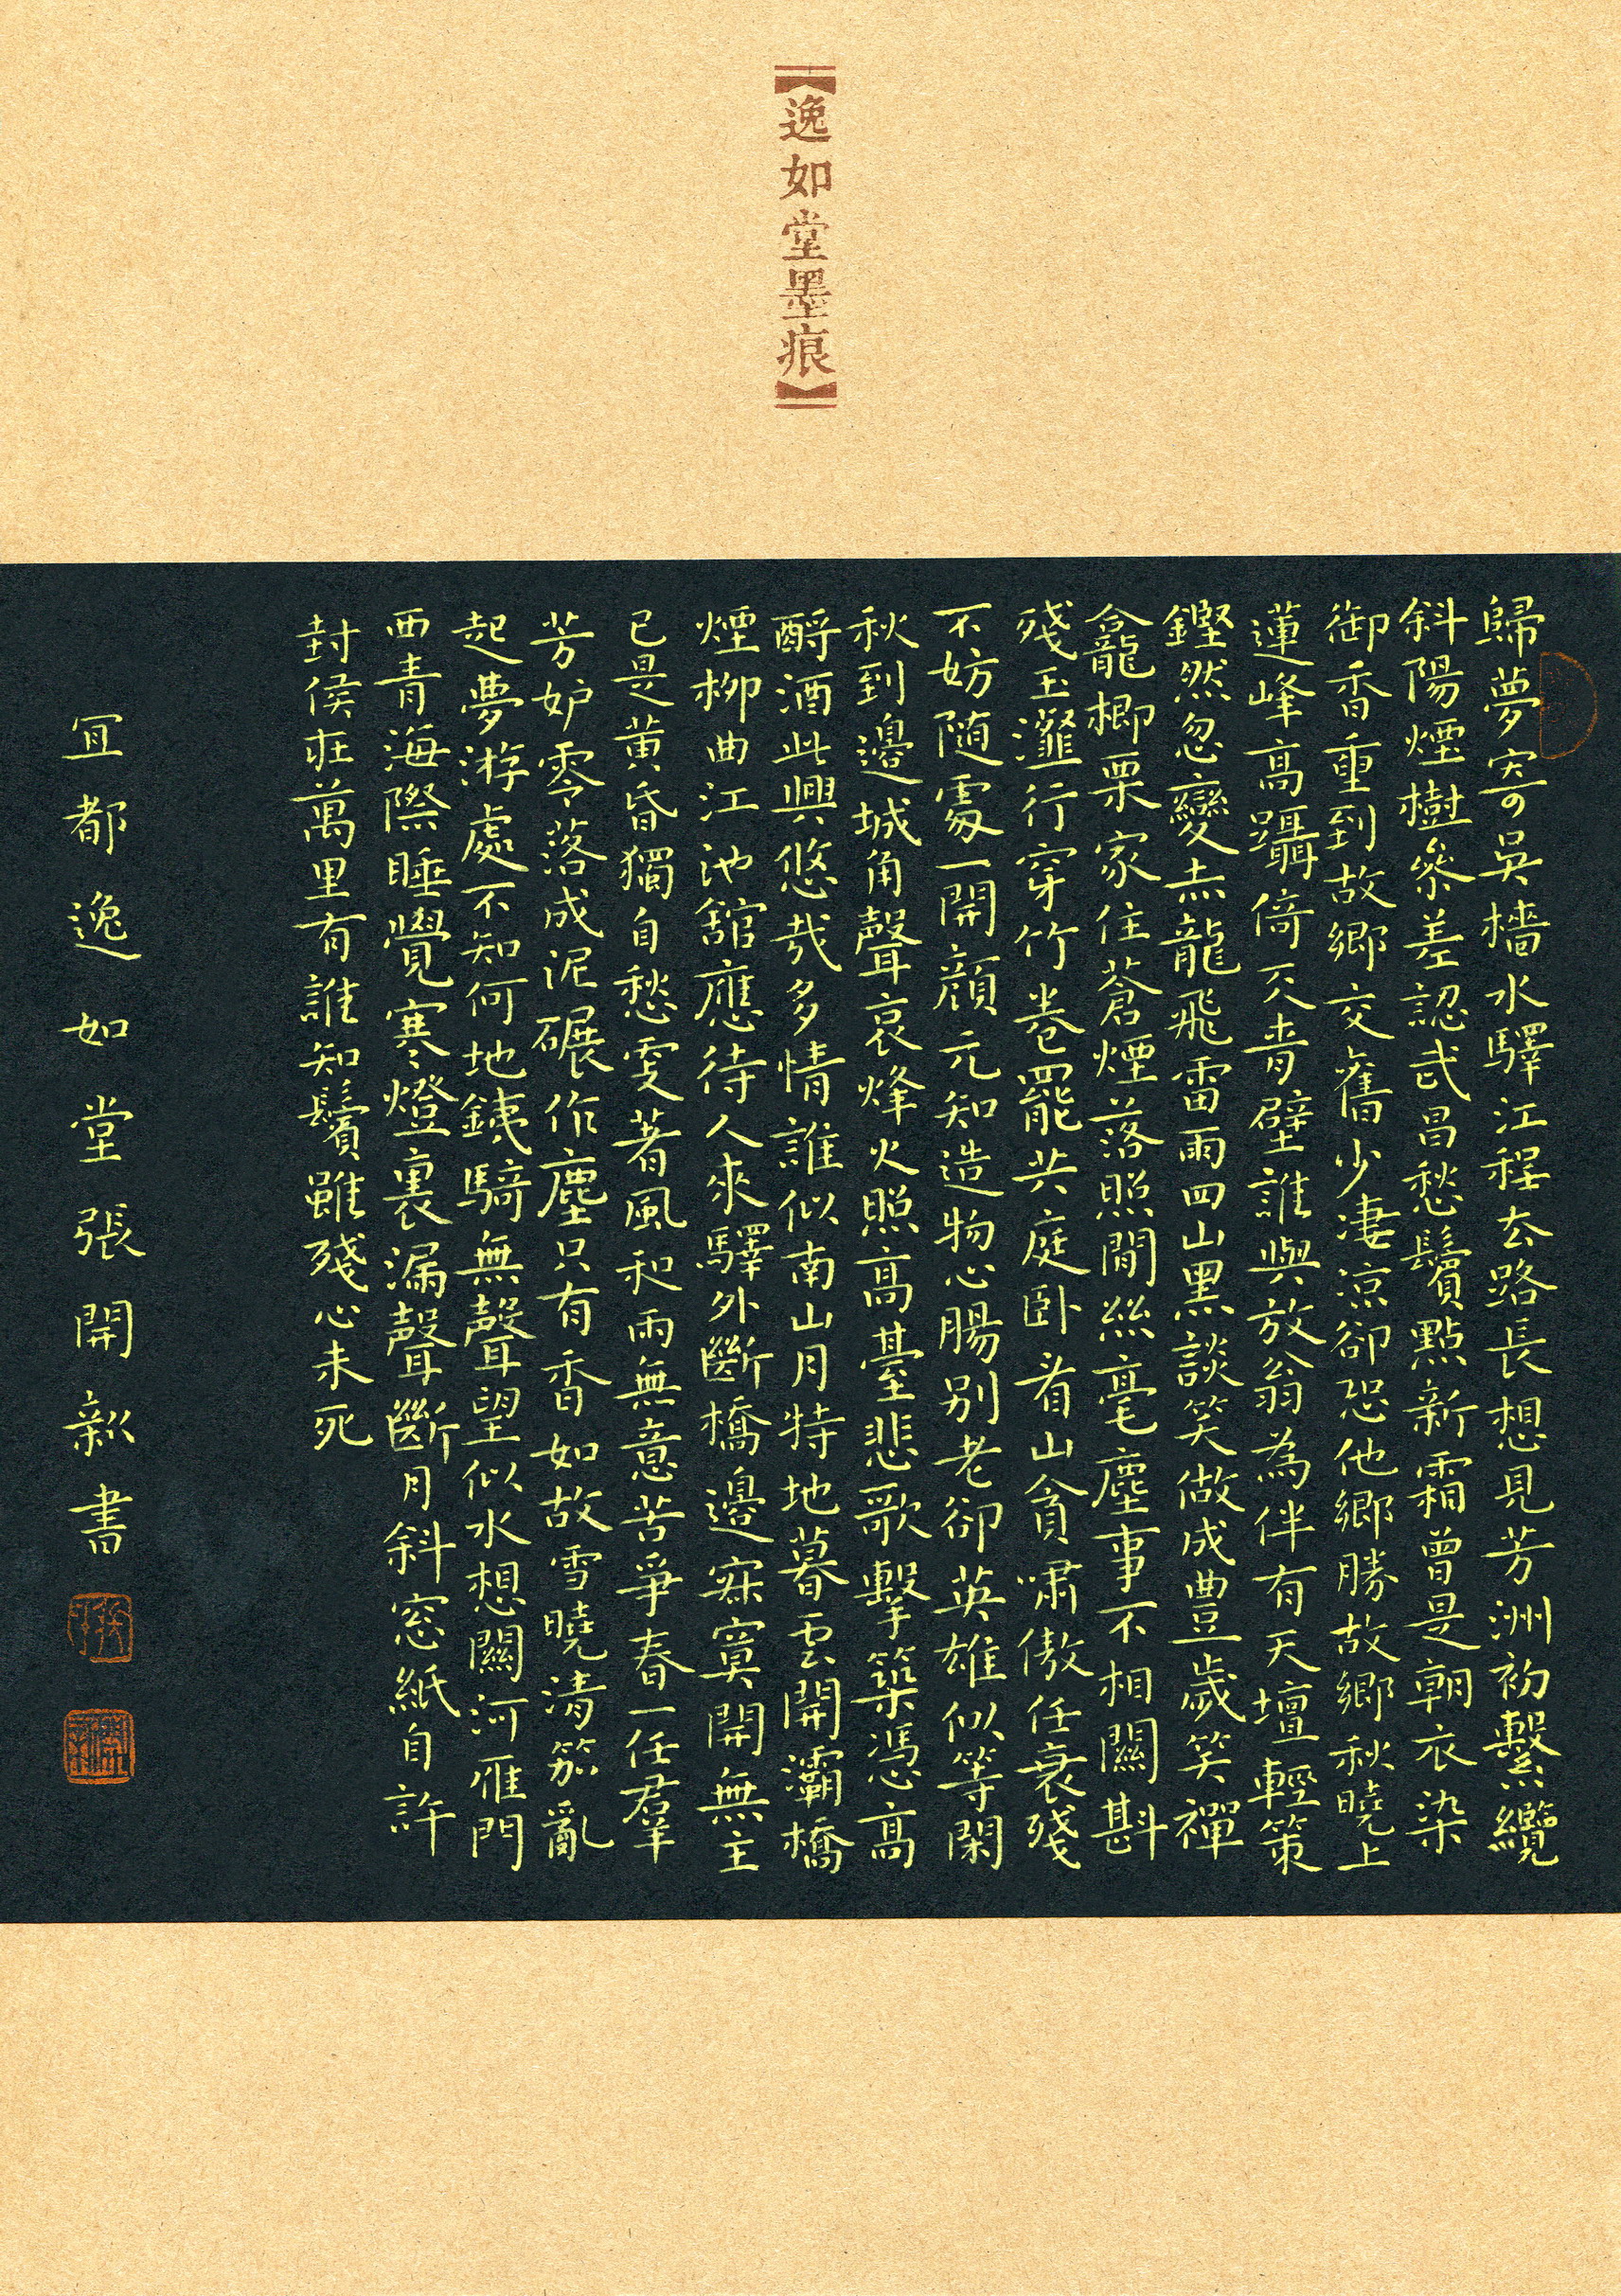 【逸如堂墨痕】
歸夢寄吳檣水驛江程去路長想見芳洲初繫纜
斜陽煙樹參差認武昌愁鬢點新霜曾是朝衣染
御香重到故鄉交舊少凄涼卻恐他鄉勝故鄉秋曉上
蓮峰高躡倚天青壁誰與放翁為伴有天壇輕策
鏗然忽變赤龍飛雷雨四山黑談笑做成豊歲笑禪
龕榔栗家住蒼煙落照間絲毫塵事不相關斟
殘玉瀣行穿竹卷罷共庭卧看山貪嘯傲任衰殘
不妨随處一開顏元知造物心腸別老卻英雄似等閑
秋到邊城角聲哀烽火照高臺悲歌擊築憑高
酹酒此興悠哉多情誰似南山月特地暮雲開灞橋
煙柳曲江池舘應待人來驛外斷橋邊寂寞開無主
已是黄昏獨自愁更著風和雨無意苦爭春一任羣
芳妒零落成泥碾作塵只有香如故雪曉清笳亂
起夢游處不知何地鐵騎無聲望似水想關河雁門
西青海際睡覺寒燈裏漏聲斷月斜窓紙自許
封侯在萬里有誰知鬢雖殘心未死
宜都逸如堂張開書